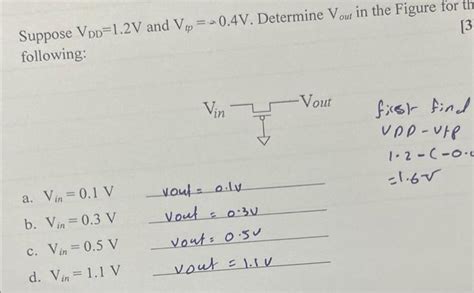 Suppose VDD=1.2V and Vtp = -0.4V. Determine Vout in the Figure for th
following:
[3
Vin
Vout
first find
VDD - Vtp
1.2-(-0.
=1.6V
a. Vin = 0.1 V
Vout = 0.1V
b. Vin = 0.3 V
Vout = 0.3V
c. Vin = 0.5 V
Vout = 0.5V
d. Vin = 1.1 V
Vout = 1.1V